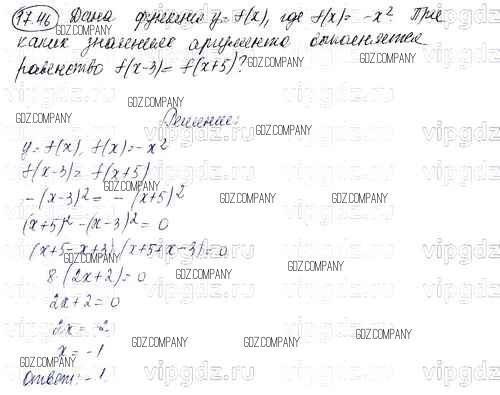 37.46 Дана функция y = f(x), где f(x) = -x² При
каких значениях аргумента выполняется
равенство f(x-3) = f(x+5)?
Решение:
y = f(x), f(x) = -x²
f(x-3) = f(x+5)
-(x-3)² = -(x+5)²
(x+5)² - (x-3)² = 0
(x+5-x+3)(x+5+x-3) = 0
8·(2x+2) = 0
2x+2 = 0
2x = -2
x = -1
Ответ: -1
GDZ.COMPANY
vipgdz.ru